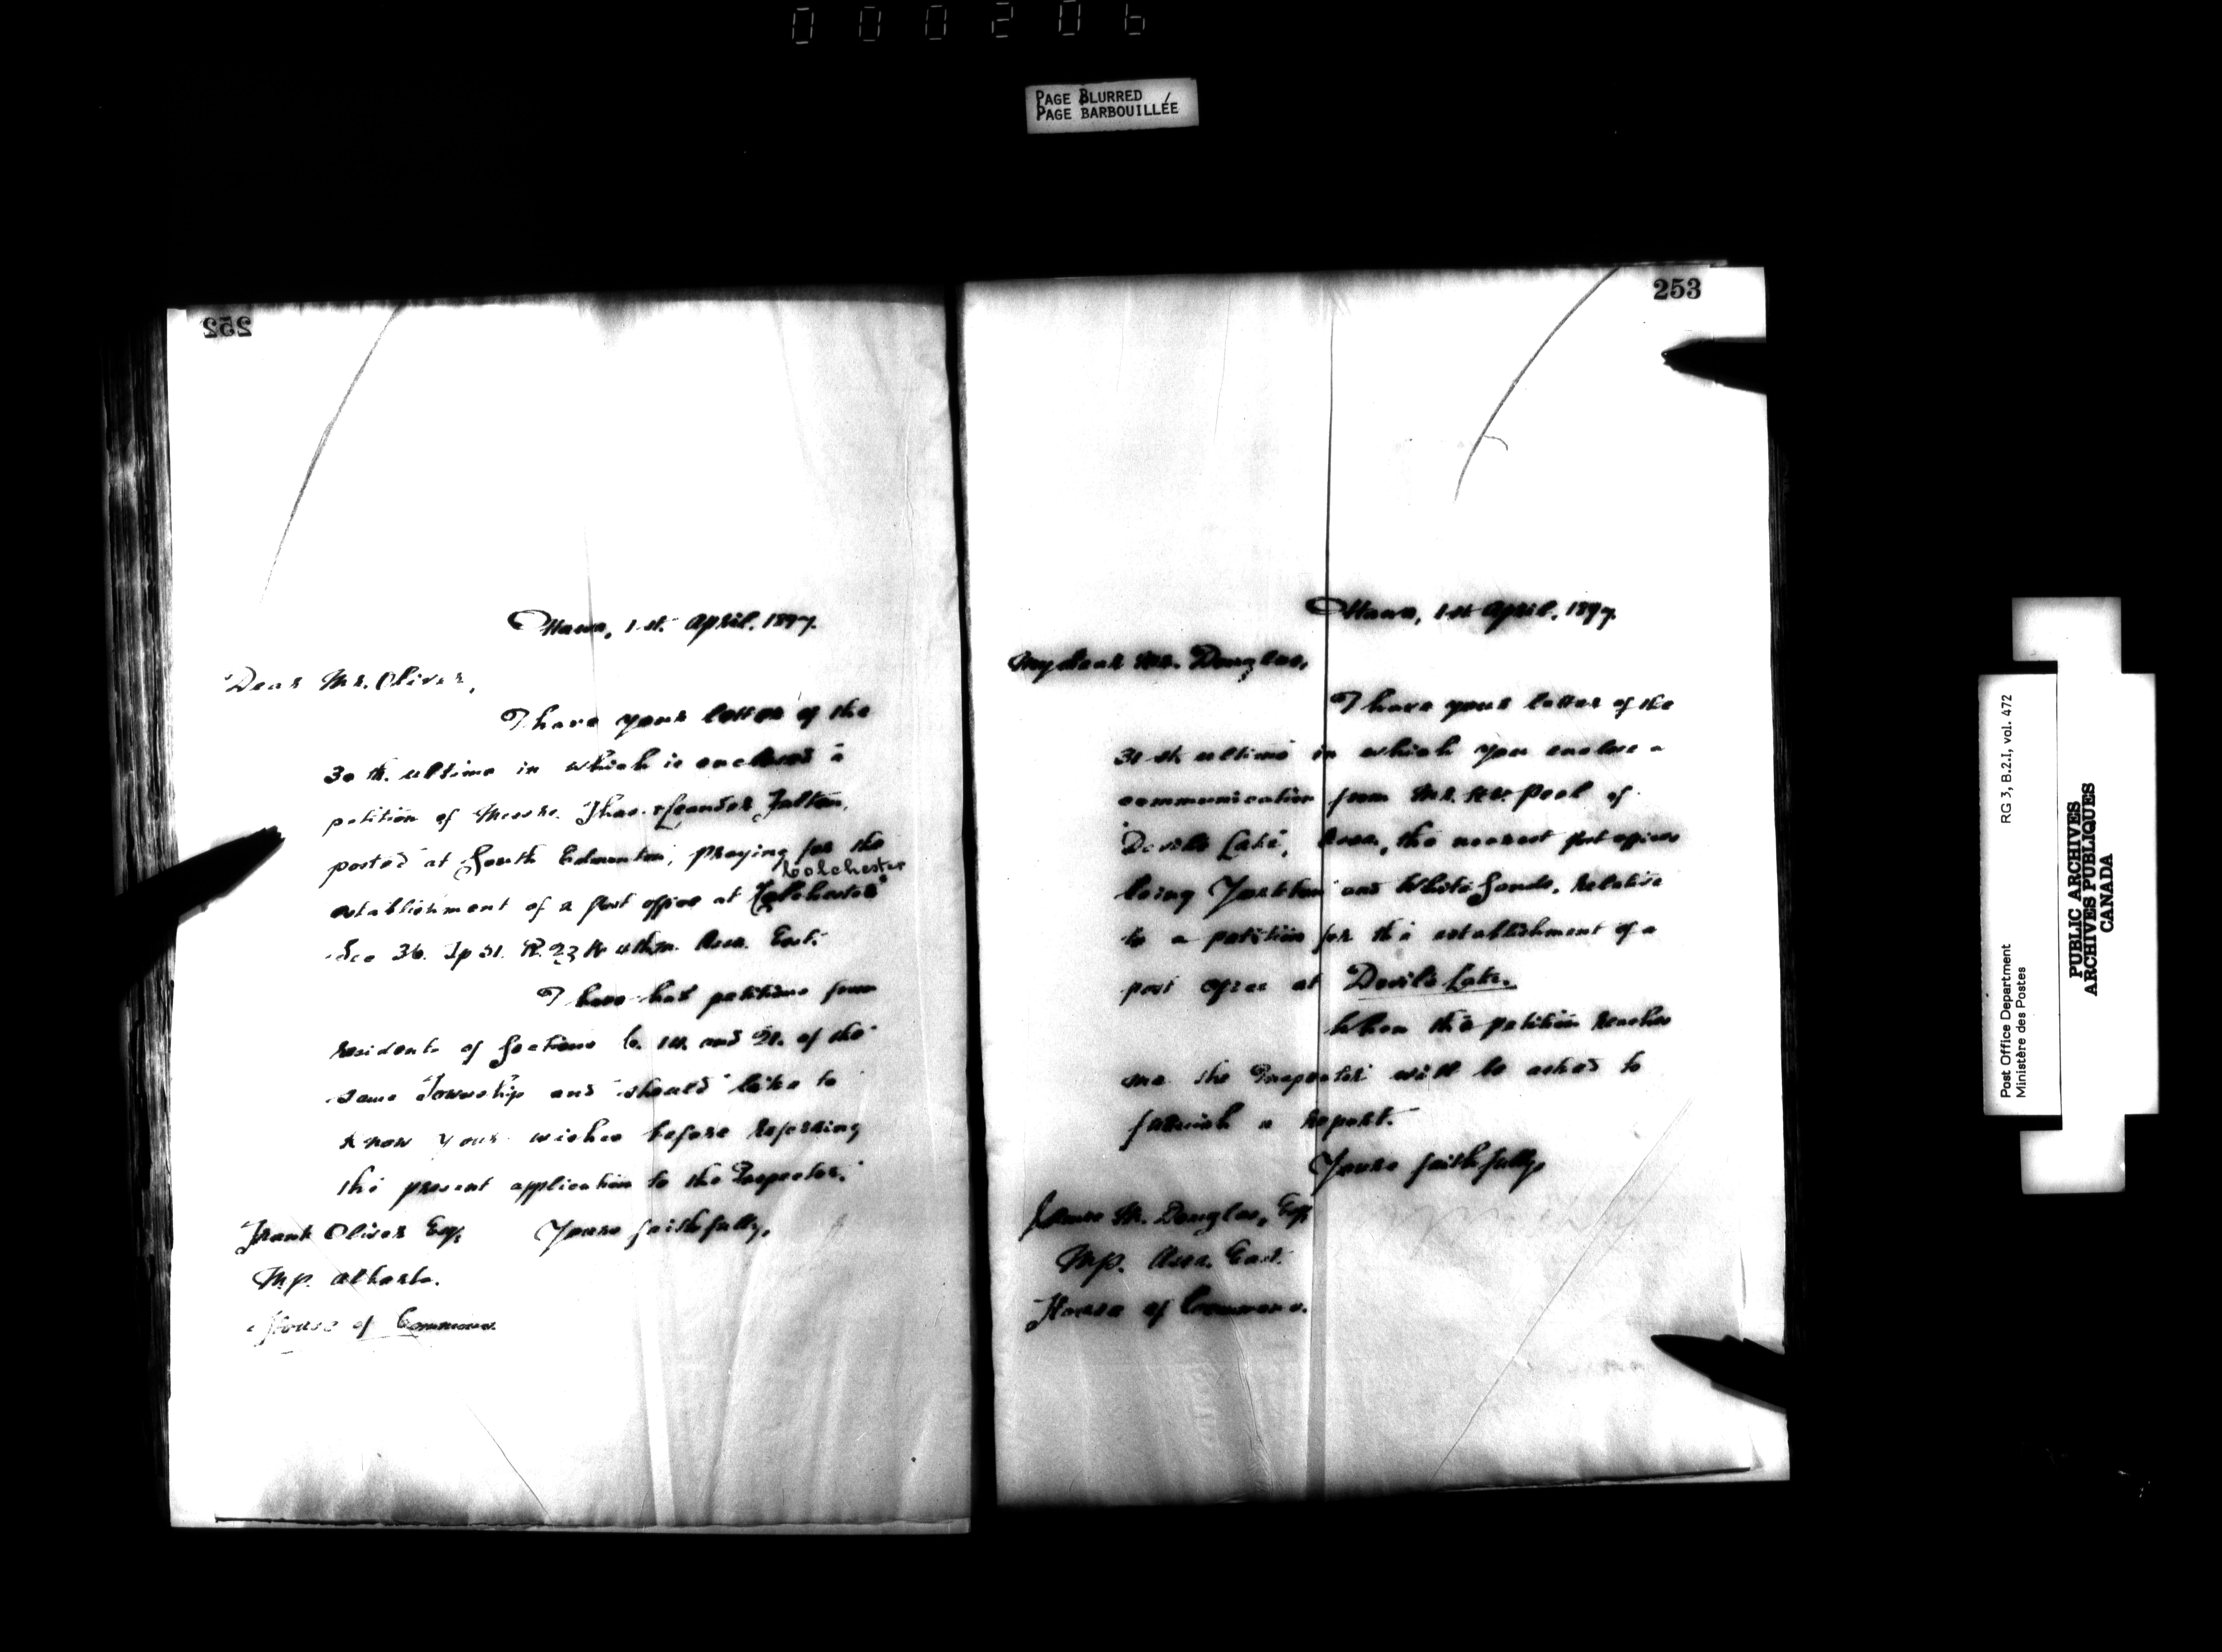 000206
PAGE BLURRED
PAGE BARBOUILLÉE
252
Ottawa, 1st. April, 1897.
Dear Mr. Oliver,
I have your letter of the
30th. ultimo in which is enclosed a
petition of Messrs. Thos. & Leander Fulton,
posted at South Edmonton, praying for the
Colchester
establishment of a post office at "Colchester"
Sec 36. Tp 51. R. 23 W 4th m. Assa. East.
I have had petitions from
residents of Sections 6. 14. and 24. of the
same Township and should like to
know your wishes before referring
the present application to the Inspector.
Yours faithfully,
Frank Oliver Esq,
M.P. Alberta.
House of Commons.
253
Ottawa, 1st April, 1897.
My dear Mr. Douglas,
I have your letter of the
31st. ultimo in which you enclose a
communication from Mr. Peel of
Devils Lake, Assa., the nearest post offices
being Yorkton and White Sands, relative
to a petition for the establishment of a
post office at Devil's Lake.
When the petition reaches
me the Inspector will be asked to
furnish a report.
Yours faithfully,
James M. Douglas, Esq,
M.P. Assa. East.
House of Commons.
Post Office Department
Ministère des Postes
RG 3, B.2.I, vol. 472
PUBLIC ARCHIVES
ARCHIVES PUBLIQUES
CANADA